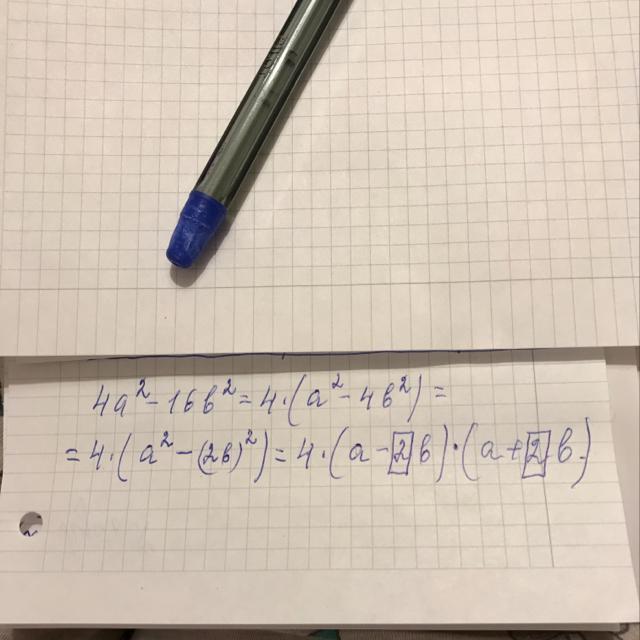 4a² - 16b² = 4·(a² - 4b²) =
= 4·(a² - (2b)²) = 4·(a - 2b)·(a + 2b)